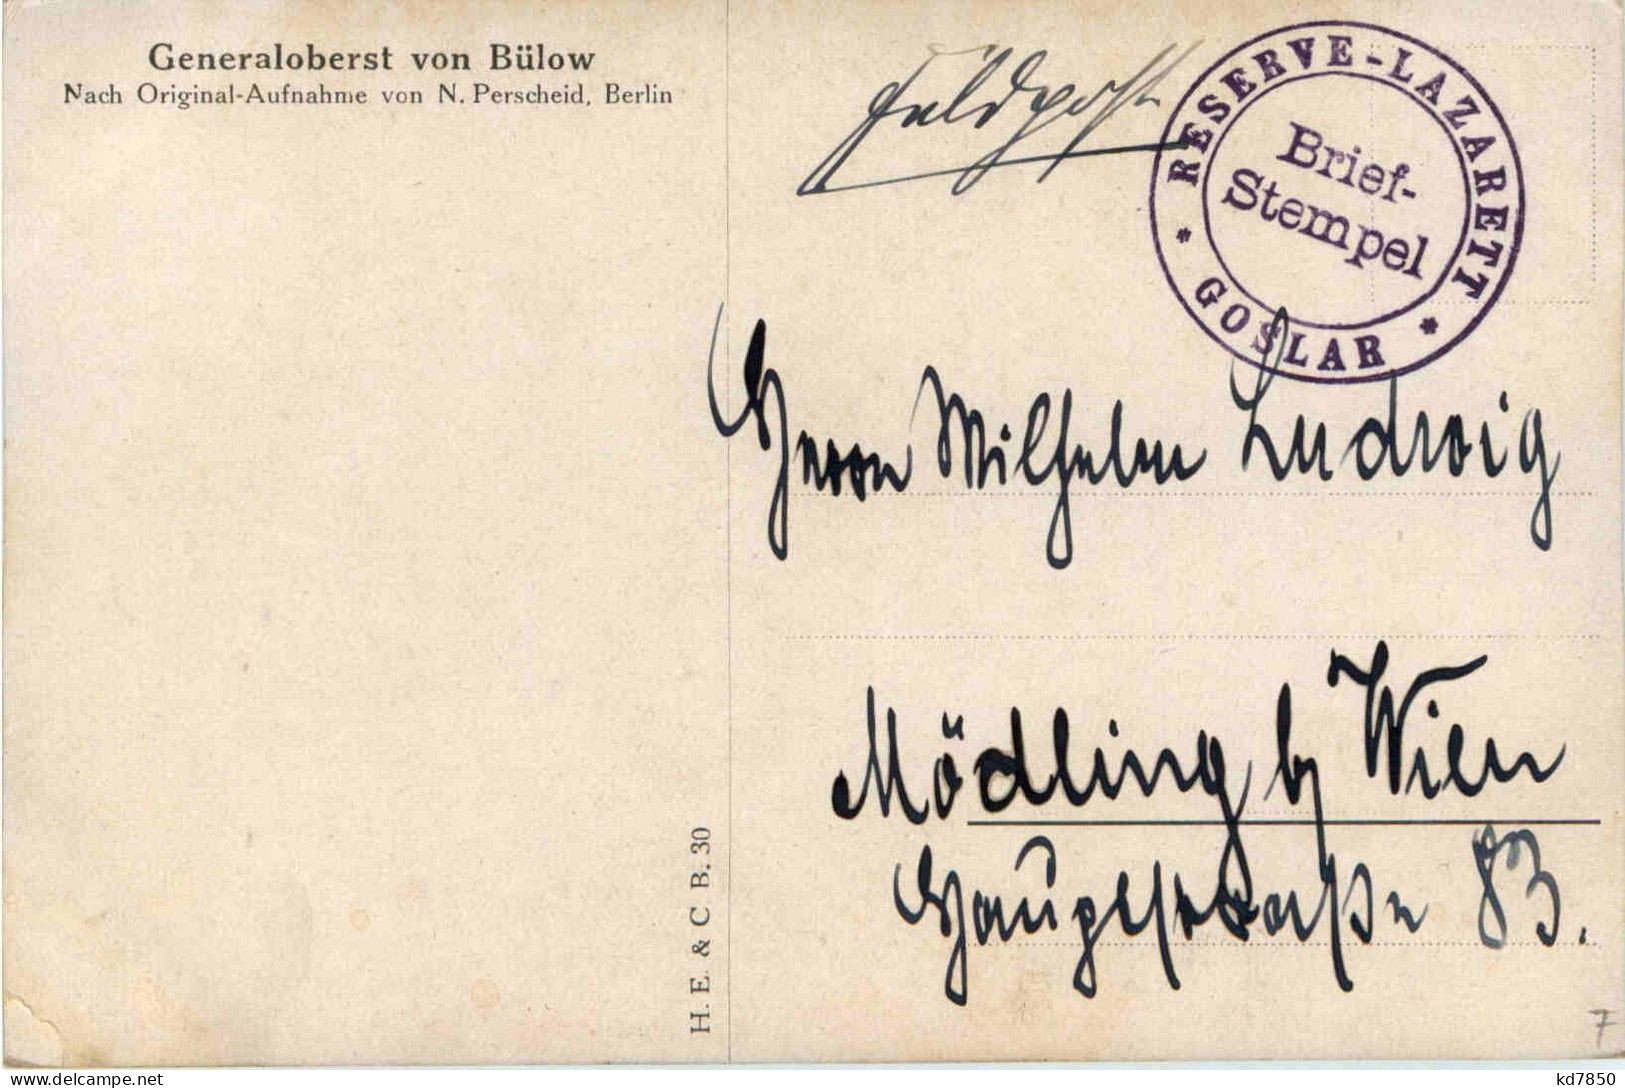 Generaloberst von Bülow
Nach Original-Aufnahme von N. Perscheid, Berlin
Feldpost
* RESERVE-LAZARETT *
GOSLAR
Brief-
Stempel
Herrn Wilhelm Ludwig
Mödling b/ Wien
Hauptstraße 83.
H. E. & C B. 30
7
kd7850